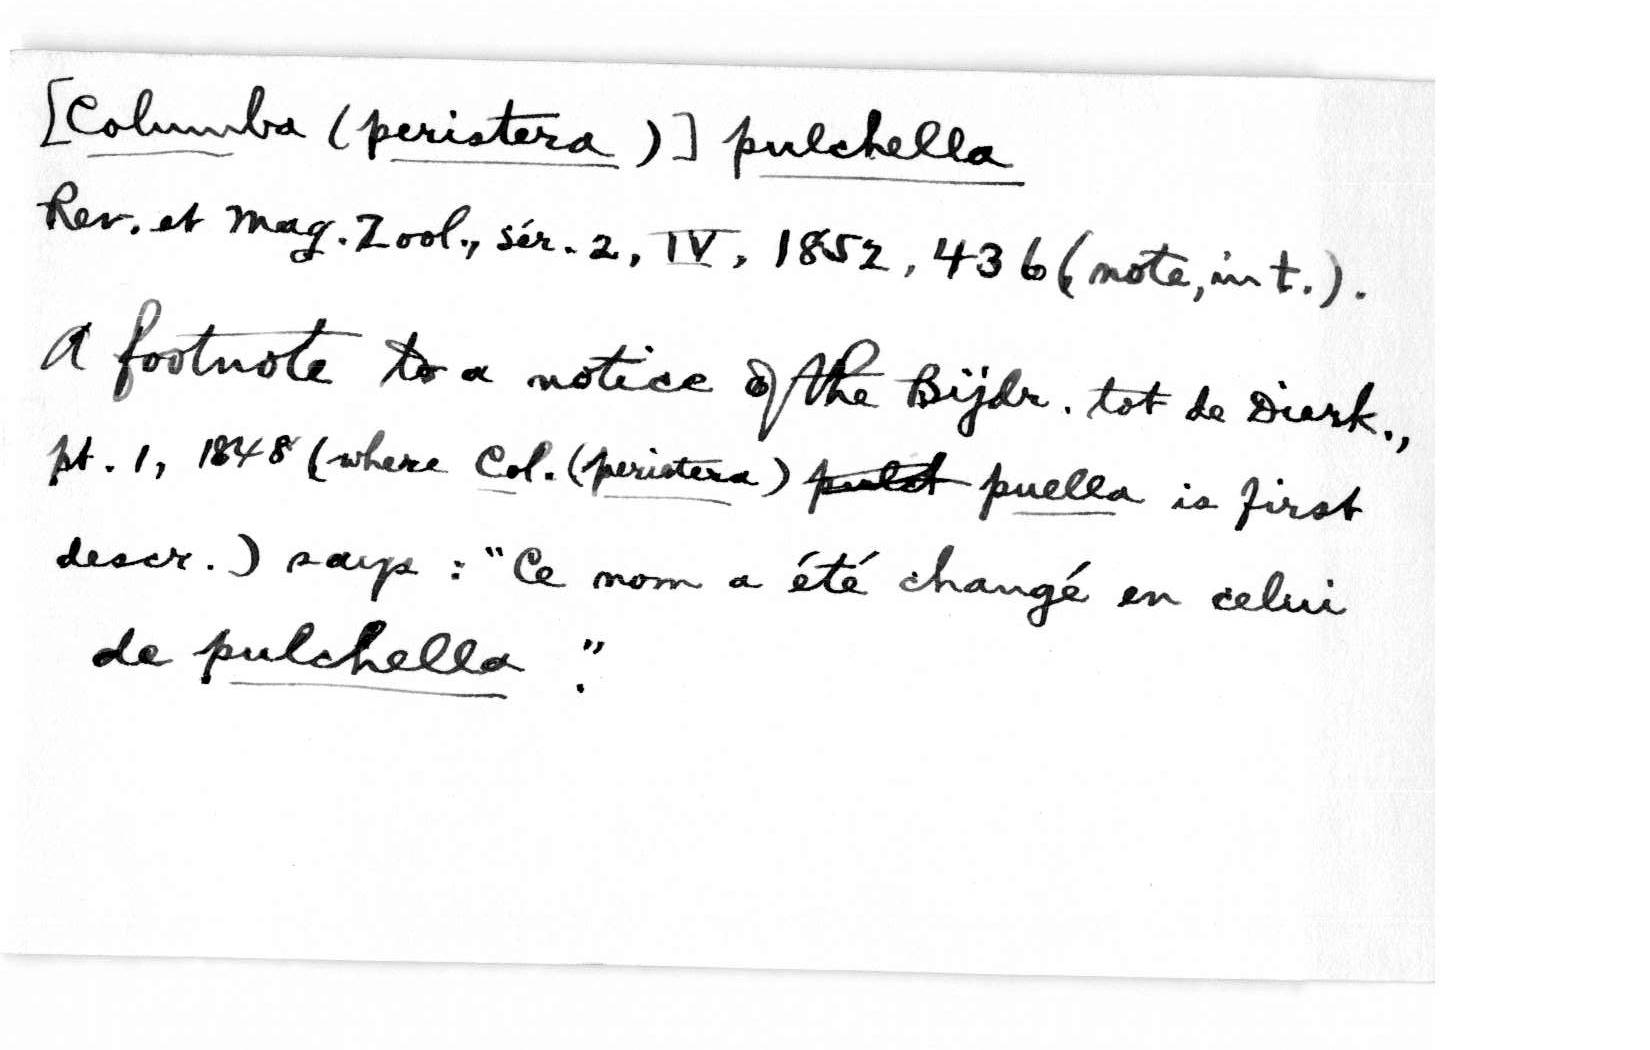 [Columba (peristera)] pulchella
Rev. et Mag. Zool., sér. 2, IV, 1852, 436 (note, in t.).
A footnote to a notice of the Bijdr. tot de Dierk.,
pt. 1, 1848 (where Col. (peristera) pulch puella is first
descr.) says: "Ce nom a été changé en celui
de pulchella."